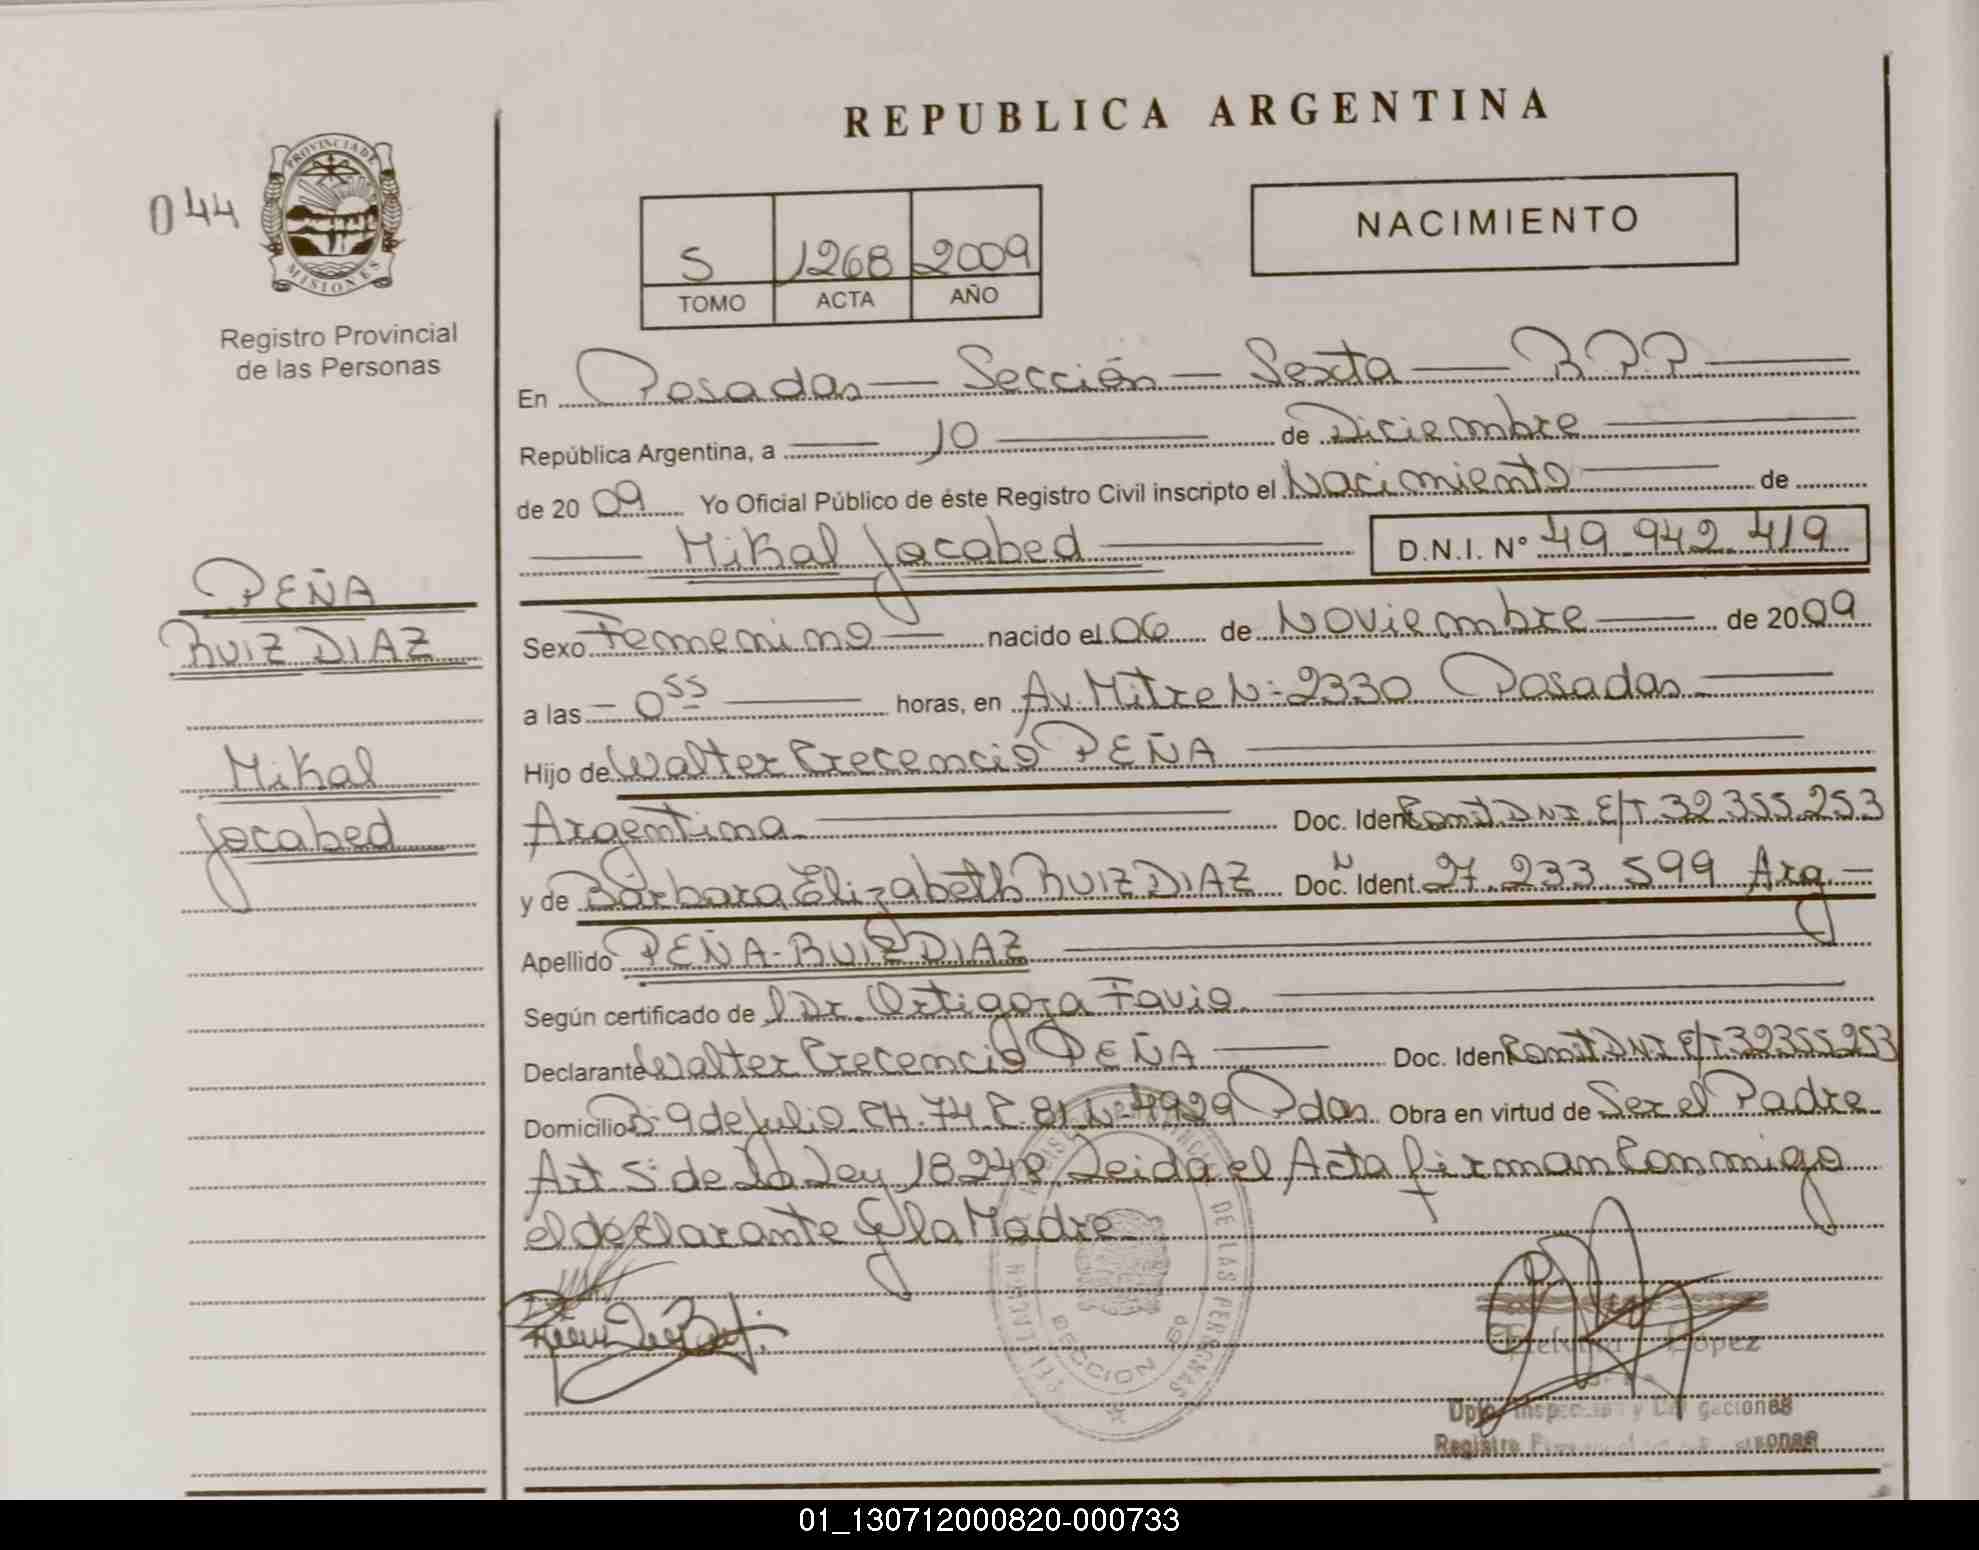 REPUBLICA ARGENTINA
044
PROVINCIA DE
MISIONES
Registro Provincial
de las Personas
NACIMIENTO
5 1268 2009
TOMO ACTA AÑO
En Posadas — Sección — Sexta — R.P.P
República Argentina, a 10 de Diciembre
de 2009 Yo Oficial Público de éste Registro Civil inscripto el Nacimiento de
Mikal Jocabed D.N.I. Nº 49.942.419
PEÑA
RUIZ DIAZ
Mikal
Jocabed
Sexo Femenino nacido el 06 de Noviembre de 2009
a las 0 55 horas, en Av. Mitre Nº 2330 Posadas
Hijo de Walter Crecencio PEÑA
Argentina Doc. Ident. DNI E/T 32.355.253
y de Bárbara Elizabeth RUIZ DIAZ Doc. Ident. 27.233.599 Arg.
Apellido PEÑA-RUIZ DIAZ
Según certificado de l Dr. Ortigoza Favio
Declarante Walter Crecencio PEÑA Doc. Ident. DNI E/T 32355253
Domicilio Bº 9 de Julio CH. 74 C. 81 Nº 4929 Pdas. Obra en virtud de Ser el Padre
Art 5º de La Ley 18248. Leida el Acta firman Conmigo
el declarante y la Madre.
DE LAS PERSONAS
SECCION 6º
López
Registro
01_130712000820-000733